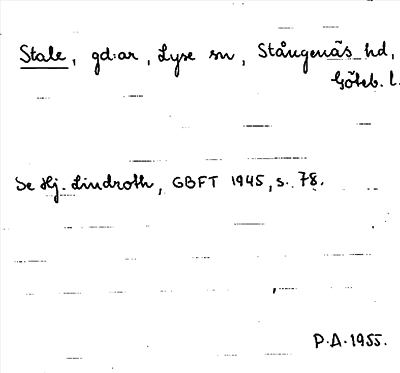 Stale, gd:ar, Lyse sn, Stångenäs hd,
Göteb. l.
Se Hj. Lindroth, GBFT 1945, s. 78.
P.A. 1955.